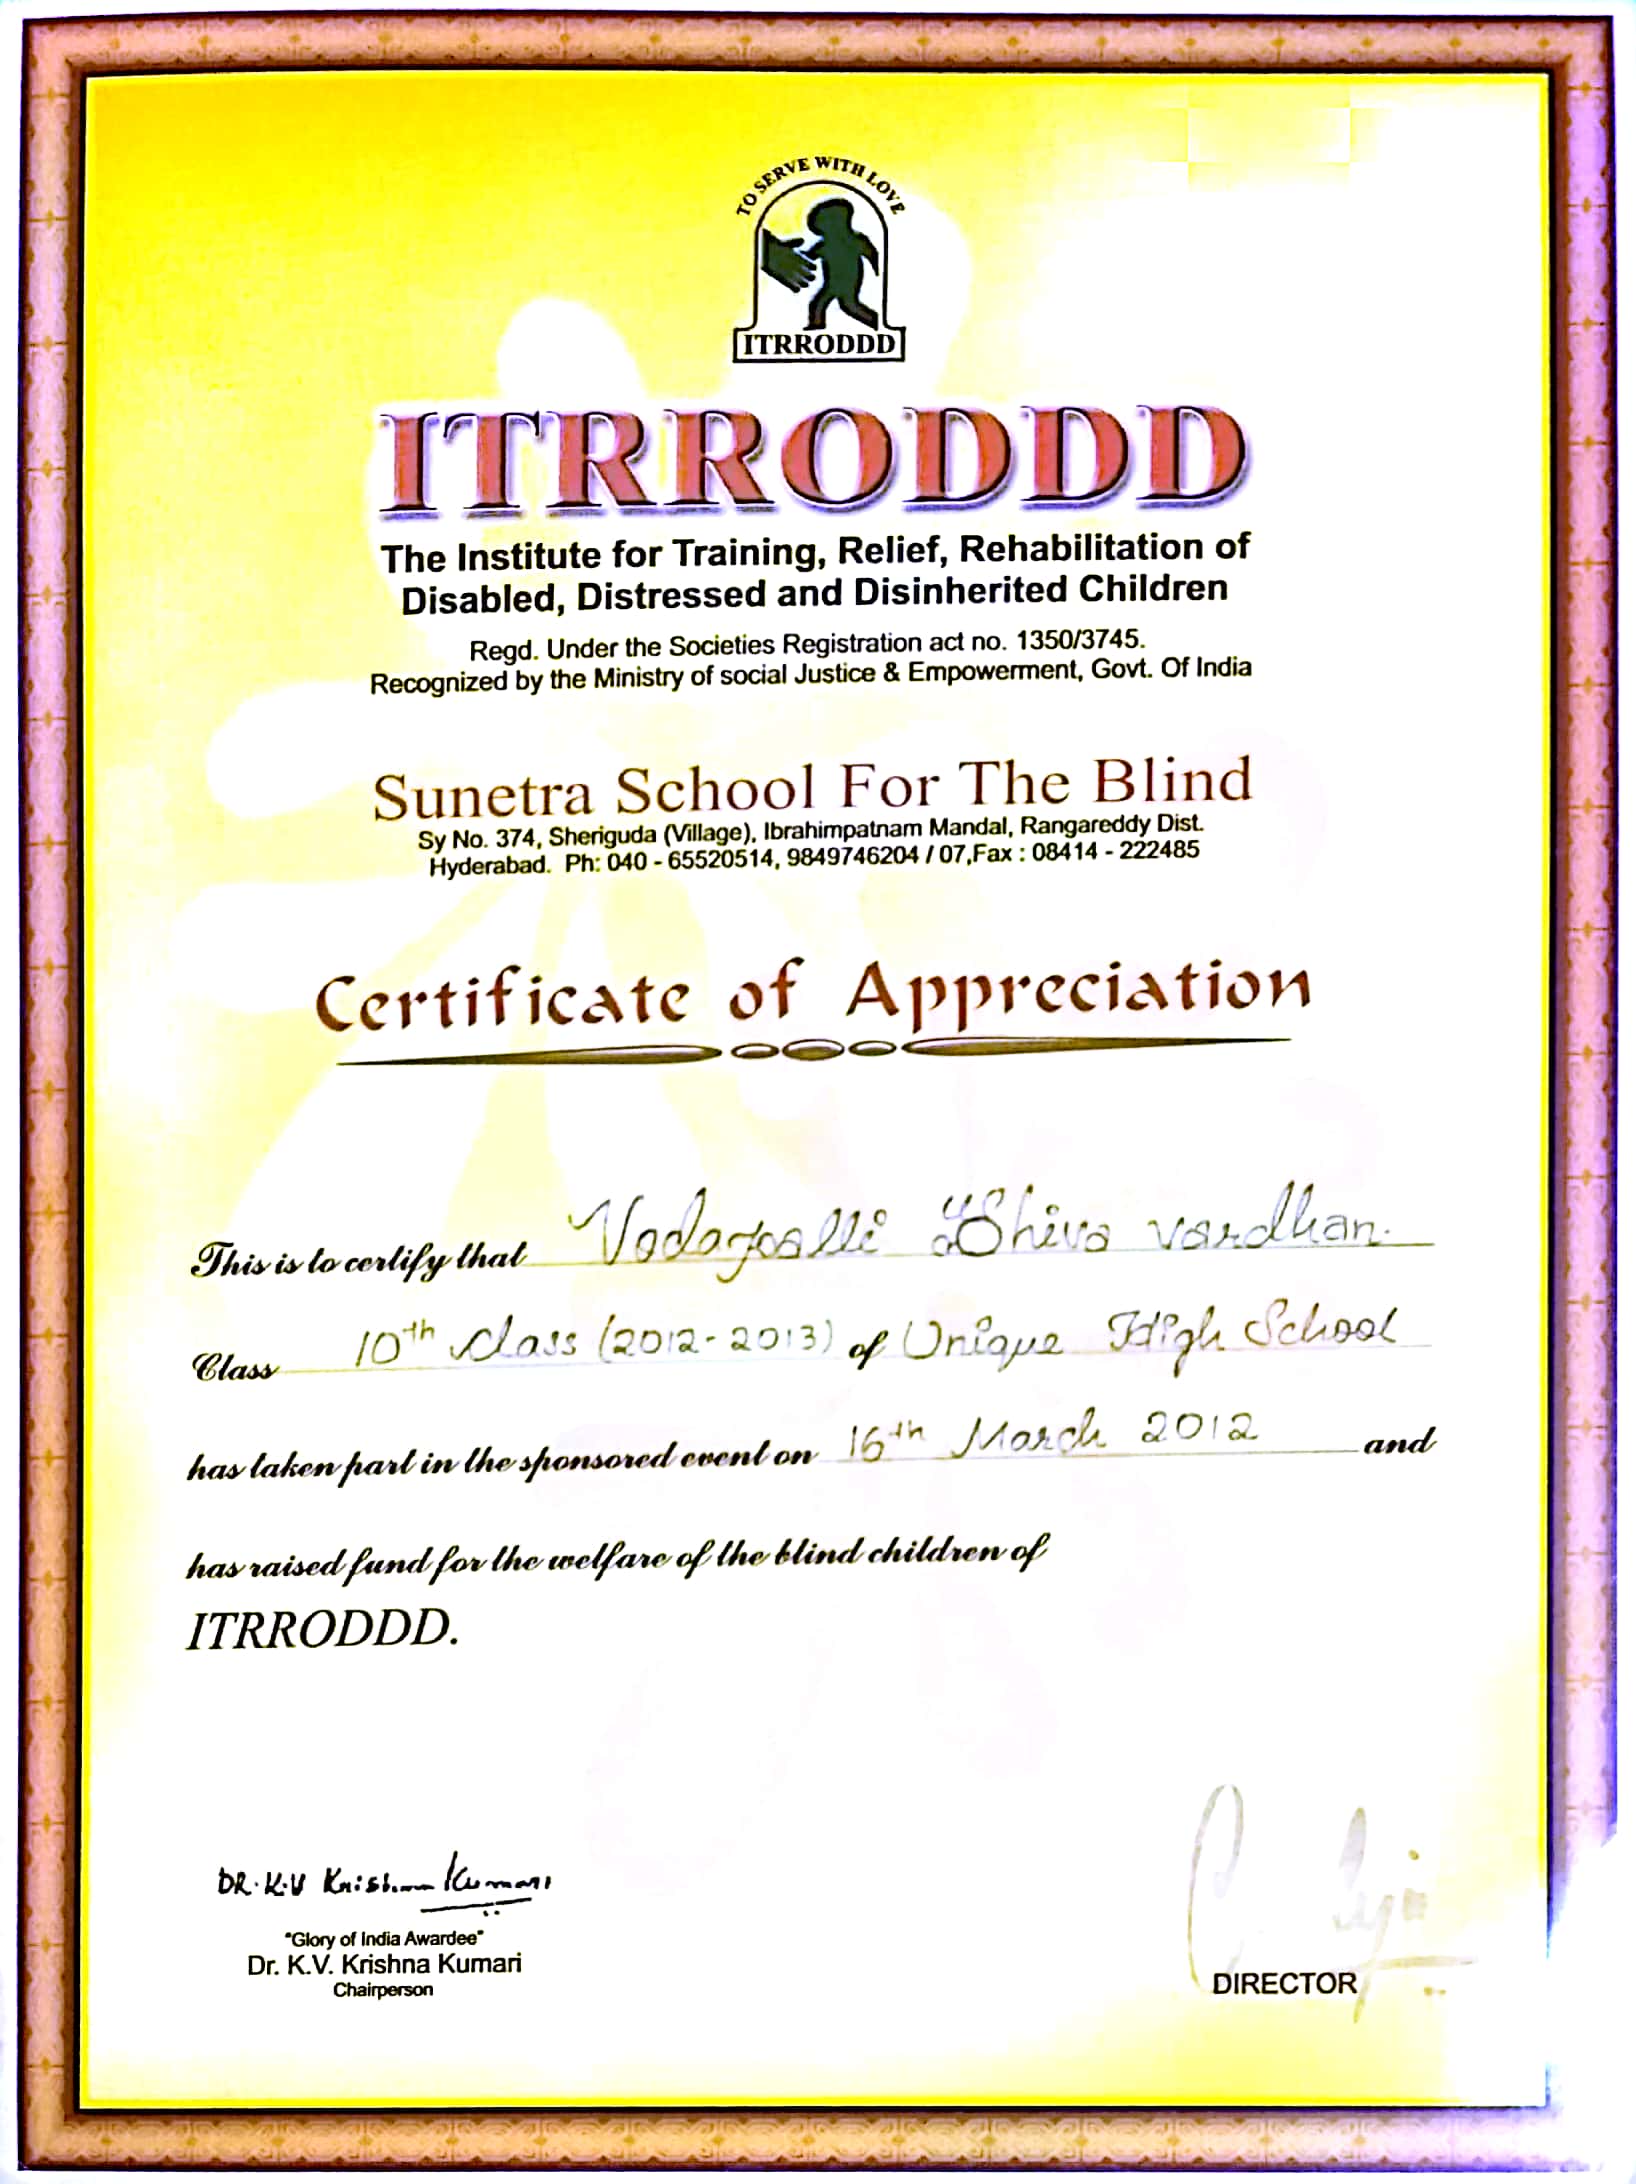 TO SERVE WITH LOVE
ITRRODDD
ITRRODDD
The Institute for Training, Relief, Rehabilitation of
Disabled, Distressed and Disinherited Children
Regd. Under the Societies Registration act no. 1350/3745.
Recognized by the Ministry of social Justice & Empowerment, Govt. Of India
Sunetra School For The Blind
Sy No. 374, Sheriguda (Village), Ibrahimpatnam Mandal, Rangareddy Dist.
Hyderabad. Ph: 040 - 65520514, 9849746204 / 07,Fax : 08414 - 222485
Certificate of Appreciation
This is to certify that Vodagoalli Shiva vardhan.
Class 10th Class (2012-2013) of Unique High School
has taken part in the sponsored event on 16th March 2012 and
has raised fund for the welfare of the blind children of
ITRRODDD.
DR. K.V Krishna Kumari
"Glory of India Awardee"
Dr. K.V. Krishna Kumari
Chairperson
DIRECTOR